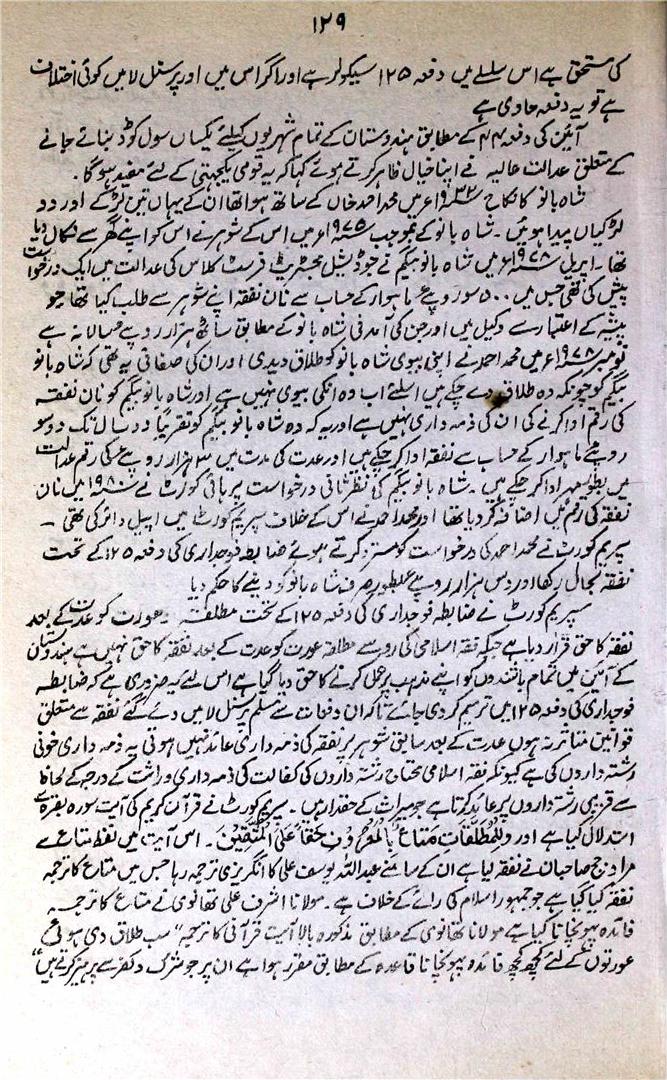 ۱۲۹
کی مستحق ہے اس سلسلے میں دفعہ ۱۲۵ سیکولر ہے اور اگر اس میں اور پرسنل لا میں کوئی اختلاف
ہے تو یہ دفعہ حاوی ہے
آئین کی دفعہ ۴۴ کے مطابق ہندوستان کے تمام شہریوں کیلئے یکساں سول کوڈ بنائے جانے
کے متعلق عدالت عالیہ نے اپنا خیال ظاہر کرتے ہوئے کہا کہ یہ قومی یکجہتی کے لئے مفید ہوگا۔
شاہ بانو کا نکاح ۱۹۳۲ء میں محمد احمد خاں کے ساتھ ہوا تھا ان کے یہاں تین لڑکے اور دو
لڑکیاں پیدا ہوئیں۔ شاہ بانو کے بموجب ۱۹۷۵ء میں اس کے شوہر نے اس کو اپنے گھر سے نکال دیا
تھا۔ اپریل ۱۹۷۸ء میں شاہ بانو بیگم نے جوڈیشل مجسٹریٹ فرسٹ کلاس کی عدالت میں ایک درخواست
پیش کی تھی جس میں ۵۰۰ سو روپے ماہوار کے حساب سے نان نفقہ اپنے شوہر سے طلب کیا تھا جو
پیشہ کے اعتبار سے وکیل ہیں اور جن کی آمدنی شاہ بانو کے مطابق ساٹھ ہزار روپے سالانہ ہے
نومبر ۱۹۷۸ء میں محمد احمد نے اپنی بیوی شاہ بانو کو طلاق دیدی اور ان کی صفائی یہ تھی کہ شاہ بانو
بیگم کو چونکہ وہ طلاق دے چکے ہیں اسلئے اب وہ انکی بیوی نہیں ہے اور شاہ بانو بیگم کو نان نفقہ
کی رقم ادا کرنے کی ان کی ذمہ داری نہیں ہے اور یہ کہ وہ شاہ بانو بیگم کو تقریباً دو سال تک دو سو
روپے ماہوار کے حساب سے نفقہ ادا کر چکے ہیں اور عدت کی مدت میں ۳ ہزار روپے کی رقم عدالت
میں بطور مہر ادا کر چکے ہیں۔ شاہ بانو بیگم کی نظرثانی درخواست پر ہائی کورٹ نے ۱۹۸۰ء میں نان
نفقہ کی رقم میں اضافہ کر دیا تھا اور محمد احمد نے اس کے خلاف سپریم کورٹ میں اپیل دائر کی تھی۔
سپریم کورٹ نے محمد احمد کی درخواست کو مسترد کرتے ہوئے ضابطہ فوجداری کی دفعہ ۱۲۵ کے تحت
نفقہ بحال رکھا اور دس ہزار روپے بطور صرف شاہ بانو کو دینے کا حکم دیا
سپریم کورٹ نے ضابطہ فوجداری کی دفعہ ۱۲۵ کے تحت مطلقہ عورت کو عدت کے بعد
نفقہ کا حق قرار دیا ہے جبکہ فقہ اسلامی کی رو سے مطلقہ عورت کو عدت کے بعد نفقہ کا حق نہیں ہے ہندوستان
کے آئین میں تمام باشندوں کو اپنے مذہب پر عمل کرنے کا حق دیا گیا ہے اس لئے یہ ضروری ہے کہ ضابطہ
فوجداری کی دفعہ ۱۲۵ میں ترمیم کر دی جائے تاکہ ان دفعات سے مسلم پرسنل لا میں دئے گئے نفقہ سے متعلق
قوانین متاثر نہ ہوں عدت کے بعد سابق شوہر پر نفقہ کی ذمہ داری عائد نہیں ہوتی یہ ذمہ داری خونی
رشتہ داروں کی ہے کیونکہ فقہ اسلامی محتاج رشتہ داروں کی کفالت کی ذمہ داری وراثت کے درجہ کے لحاظ
سے قریبی رشتہ داروں پر عائد کرتا ہے جو میراث کے حقدار ہیں۔ سپریم کورٹ نے قرآن کریم کی آیت سورہ بقرہ سے
استدلال کیا ہے اور وَلِلْمُطَلَّقَاتِ مَتَاعٌ بِالْمَعْرُوفِ حَقًّا عَلَى الْمُتَّقِیْنَ۔ اس آیت میں لفظ متاع سے
مراد جج صاحبان نے نفقہ لیا ہے ان کے سامنے عبداللہ یوسف علی کا انگریزی ترجمہ رہا جس میں متاع کا ترجمہ
نفقہ کیا گیا ہے جو جمہور اسلام کی رائے کے خلاف ہے۔ مولانا اشرف علی تھانوی نے متاع کا ترجمہ
فائدہ پہونچانا کیا ہے مولانا تھانوی کے مطابق مذکورہ بالا آیت قرآنی کا ترجمہ "سب طلاق دی ہوئی
عورتوں کے لئے کچھ کچھ فائدہ پہونچانا قاعدہ کے مطابق مقرر ہوا ہے ان پر جو شرک و کفر سے پرہیز کرتے ہیں"